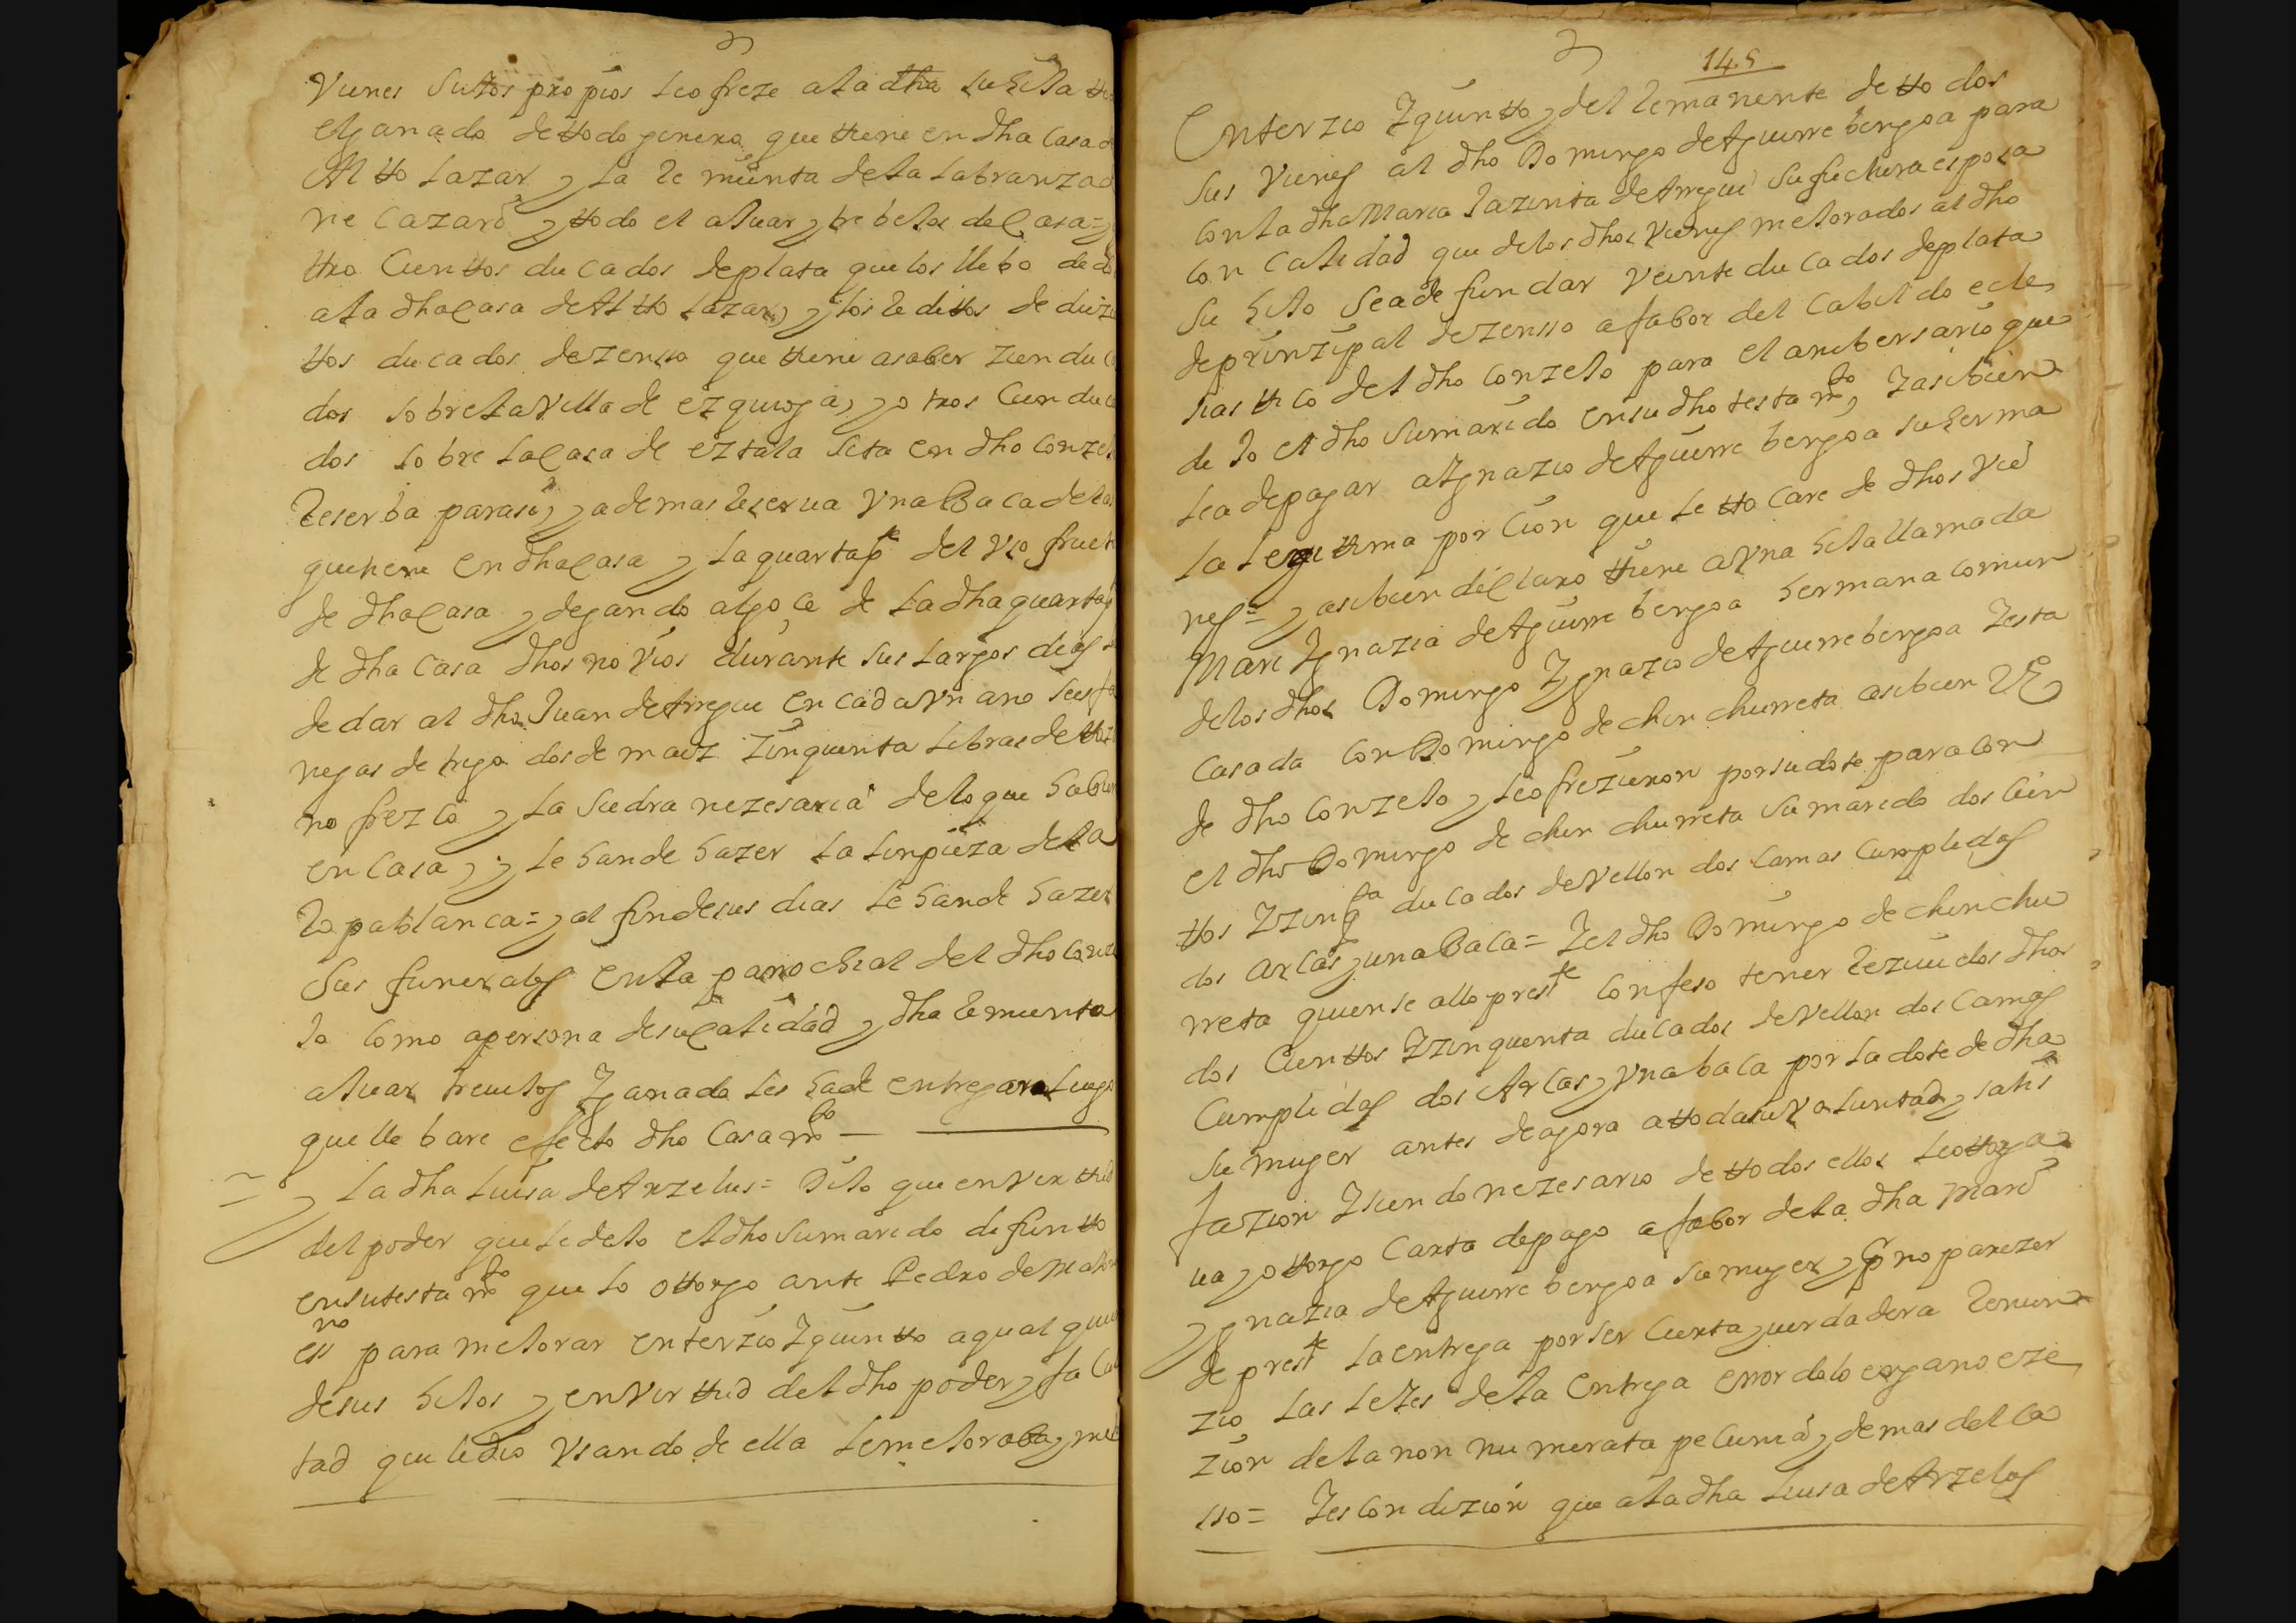 Vienes sullos propios le ofreze a la dha su hila
el ganado de ttodo genero que ttiene en dha casa
Altto lazar y la remienta de la labranza
ne cazaro y ttodo el aluar y trebelos de casa =
ttro cienttos ducados de plata que los llebo
a la dha casa de Altto lazar, y los redittos de duzi
ttos ducados de zenso que ttiene a saber zien du
dos sobre la Villa de ezquioga, y otros cien du
dos sobre la casa de eztala sita en dho conze
Reserba para si, y ademas reserua Vna Baca de la
que tiene en dha casa y la quarta pte del Vso fruct
de dha casa y degando algo ce de la dha quarta
de dha casa dhos novios durante sus largos dias
de dar al dho Juan de Arregui en cada vn ano seis fa
negas de trigo dos de maiz zinquenta libras de
no frezco y la sidra nezesaria de lo que
en casa, y le han de hazer la linpieza de la
ropa blanca = y al fin de sus dias le han de hazer
sus funerales en la parrochial del dho conze
lo como a persona de su calidad y dha remienta
aluar treuelos y ganado les ha de entregar luego
que llebare efecto dho casamto —
y la dha Luisa de Arzelus = Dilo que en Virttud
del poder que le delo el dho su marido difuntto
en su testamto que lo ottorgo ante Pedro de
essno para melorar en terzio y quintto a qual quie
de sus hilos y en virttud del dho poder y facul
tad que le dio Vsando de ella le meloraba y
145
En terzio y quintto y del remanente de ttodos
sus Vienes al dho Domingo de Aguirre bengoa para
con la dha Maria Jazinta de Arregui su futura esposa
con calidad que de los dhos Vienes melorados al dho
su hilo se a de fundar Veinte ducados de plata
de prinzipal de zensso a fabor del Cabildo ecle
siasttico del dho Conzelo para el anibersario que
delo el dho su marido en su dho testamto, y asibien
le a de pagar a Ygnazio de Aguirre bengoa su herma
la legittima porcion que le ttocare de dhos vie
nes = y asibien declaro ttiene a Vna hila llamada
Mari Ygnazia de Aguirre bengoa hermana comun
de los dhos Domingo Ygnazio de Aguirre bengoa y esta
casada con Domingo de chinchurreta asibien
de dho conzelo y le ofrezieron por su dote para con
el dho Domingo de chinchurreta su marido dos cien
ttos y zinqta ducados de Vellon dos camas cumplidas
dos arcas y una Baca = y el dho Domingo de chinchu
rreta quien se allo preste confeso tener rezuidos dhos
dos cienttos y zinquenta ducados de Vellon dos camas
cumplidas dos Arcas y vna baca por la dote de dha
su muger antes de agora a ttoda su voluntad y satis
fazion y siendo nezesario de ttodos ellos le ottorga
ua y ottorgo Carta de pago a fabor de la dha Mari
Ygnazia de Aguirre bengoa su muger y por no parezer
de preste la entrega por ser cierta y uerdadera Renun
zio las leyes de la Entrega error dolo engano eze
zion de la non numerata pecunia y demas del ca
sso = y es condizion que a la dha Luisa de Arzelus